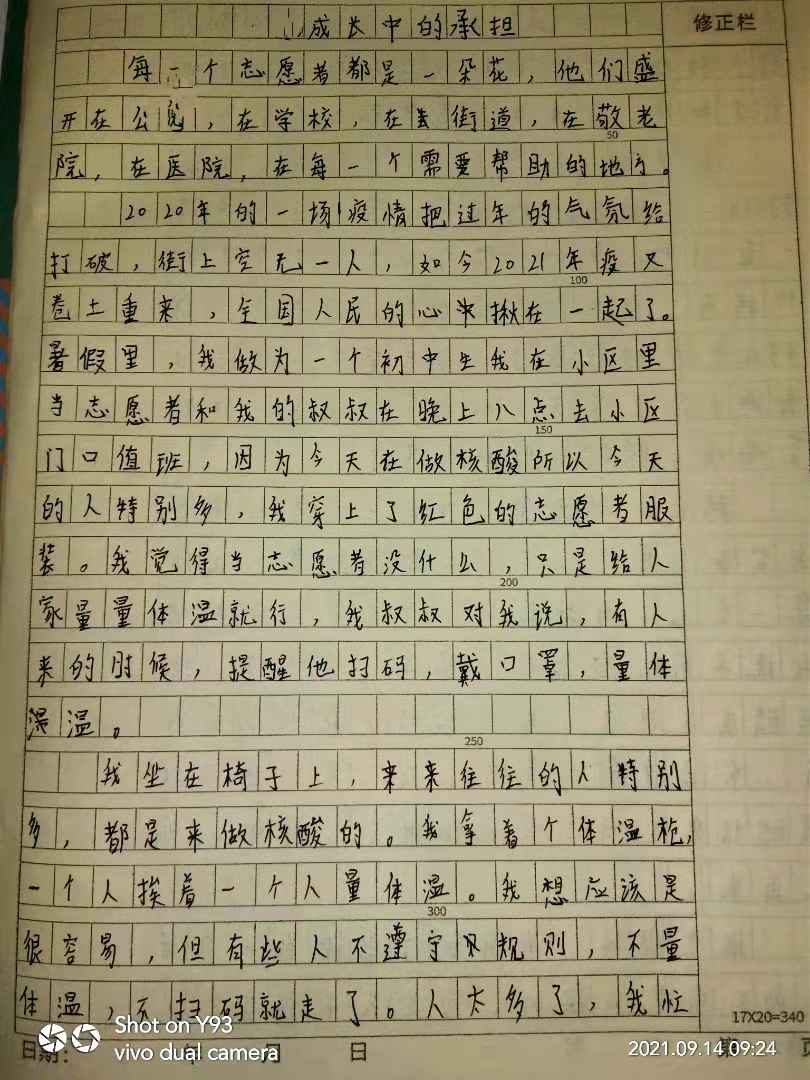 成长中的承担
修正栏
每一个志愿者都是一朵花，他们盛
开在公园，在学校，在街道，在敬老
50
院，在医院，在每一个需要帮助的地方。
2020年的一场疫情把过年的气氛给
打破，街上空无一人，如今2021年疫又
100
卷土重来，全国人民的心揪在一起了。
暑假里，我做为一个初中生我在小区里
当志愿者和我的叔叔在晚上八点去小区
150
门口值班，因为今天在做核酸所以今天
的人特别多，我穿上了红色的志愿者服
装。我觉得当志愿者没什么，只是给人
200
家量量体温就行，我叔叔对我说，有人
来的时候，提醒他扫码，戴口罩，量体
温温。
250
我坐在椅子上，来来往往的人特别
多，都是来做核酸的。我拿着个体温枪，
一个人挨着一个人量体温。我想应该是
300
很容易，但有些人不遵守规则，不量
体温，不扫码就走了。人太多了，我忙
17X20=340
Shot on Y93
vivo dual camera
日期： 年 月 日
第 页
2021.09.14 09:24